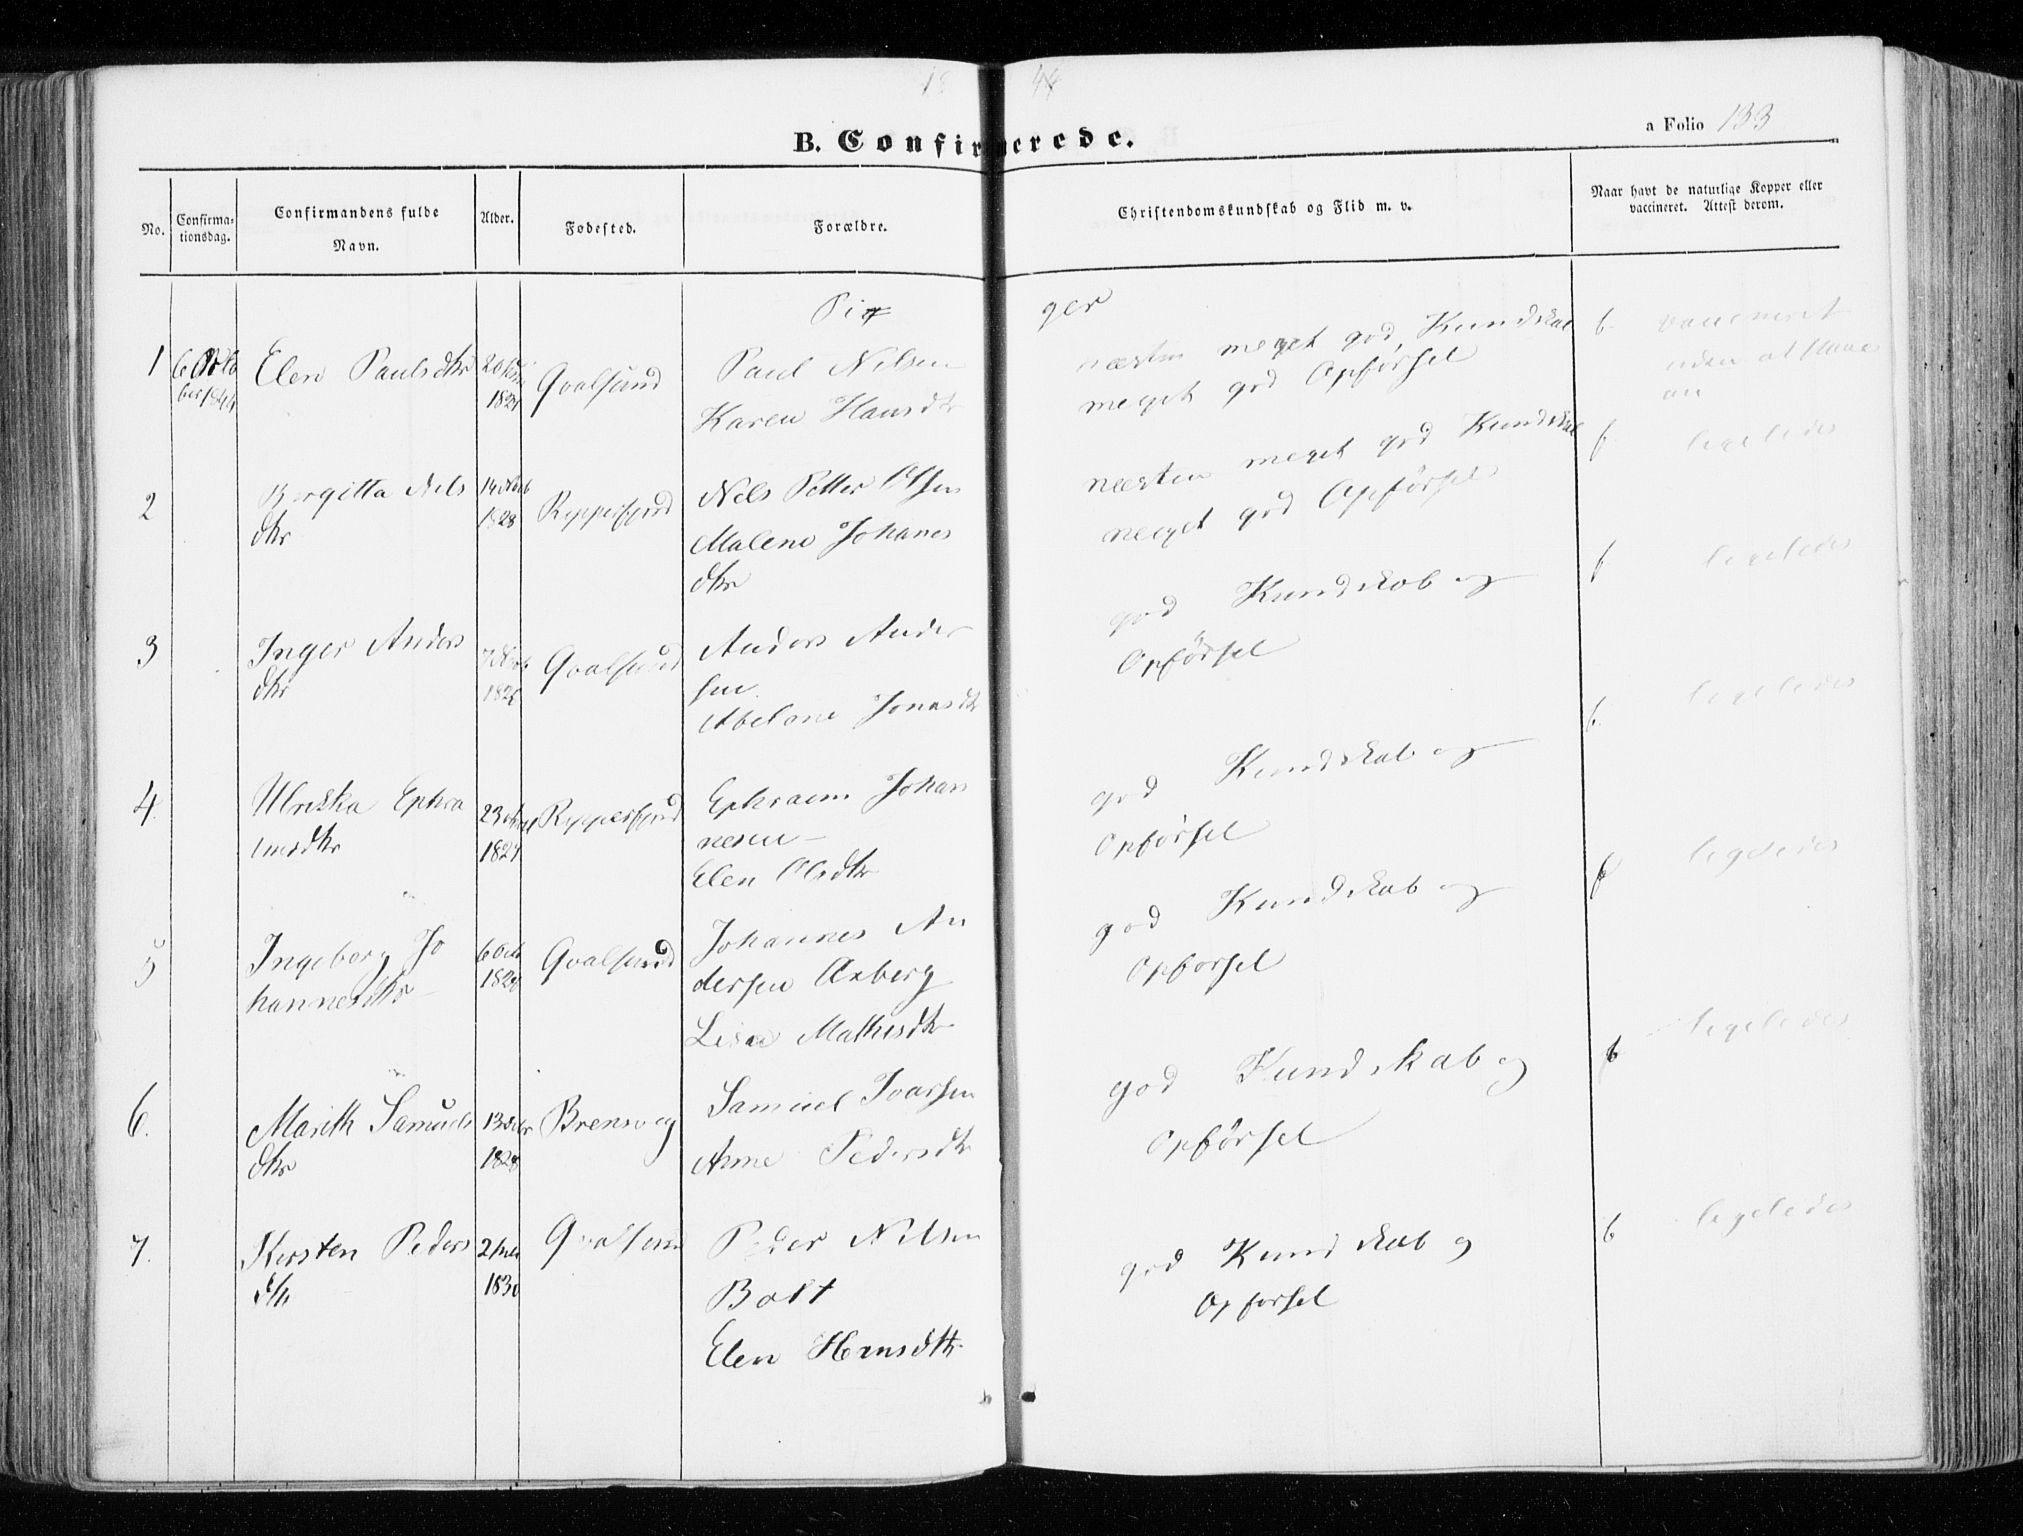 18 44
B. Confirmerede.
a Folio 133
No.
Confirma-
tionsdag.
Confirmandens fulde
Navn.
Alder.
Fødested.
Forældre.
Christendomskundskab og Flid m. v.
Naar havt de naturlige Kopper eller
vaccineret. Attest derom.
Piger
1
Elen Paulsdtr
Qvalsund
Paul Nilsen
Karen Hansdtr
næsten meget god Kundskab
meget god Opførsel
vaccineret
2
Birgitta Nils
dtr
1828
Repperfjord
Nils Petter Olsen
Malene Johanes
dtr
næsten meget god Kundskab
meget god Opførsel
ligeledes
3
Inger Anders
dtr
Qvalsund
Anders Ander
sen
Abelone Jonasdtr
god Kundskab og
Opførsel
ligeledes
4
Ulrikka Ephra
imsdtr
Repperfjord
Ephraem Johan
nesen
Elen Olsdtr
god Kundskab og
Opførsel
ligeledes
5
Ingeborg Jo
hannesdtr
Qvalsund
Johannes An
dersen Axberg
Lisa Mathisdtr
god Kundskab og
Opførsel
ligeledes
6.
Marith Samuels
dtr
1828
Samuel Ivarsen
Anne Pedersdtr
god Kundskab og
Opførsel
ligeledes
7.
Kirsten Peders
dtr
1830
Qvalsund
Peder Nilsen
Elen Hansdtr
god Kundskab og
Opførsel
ligeledes